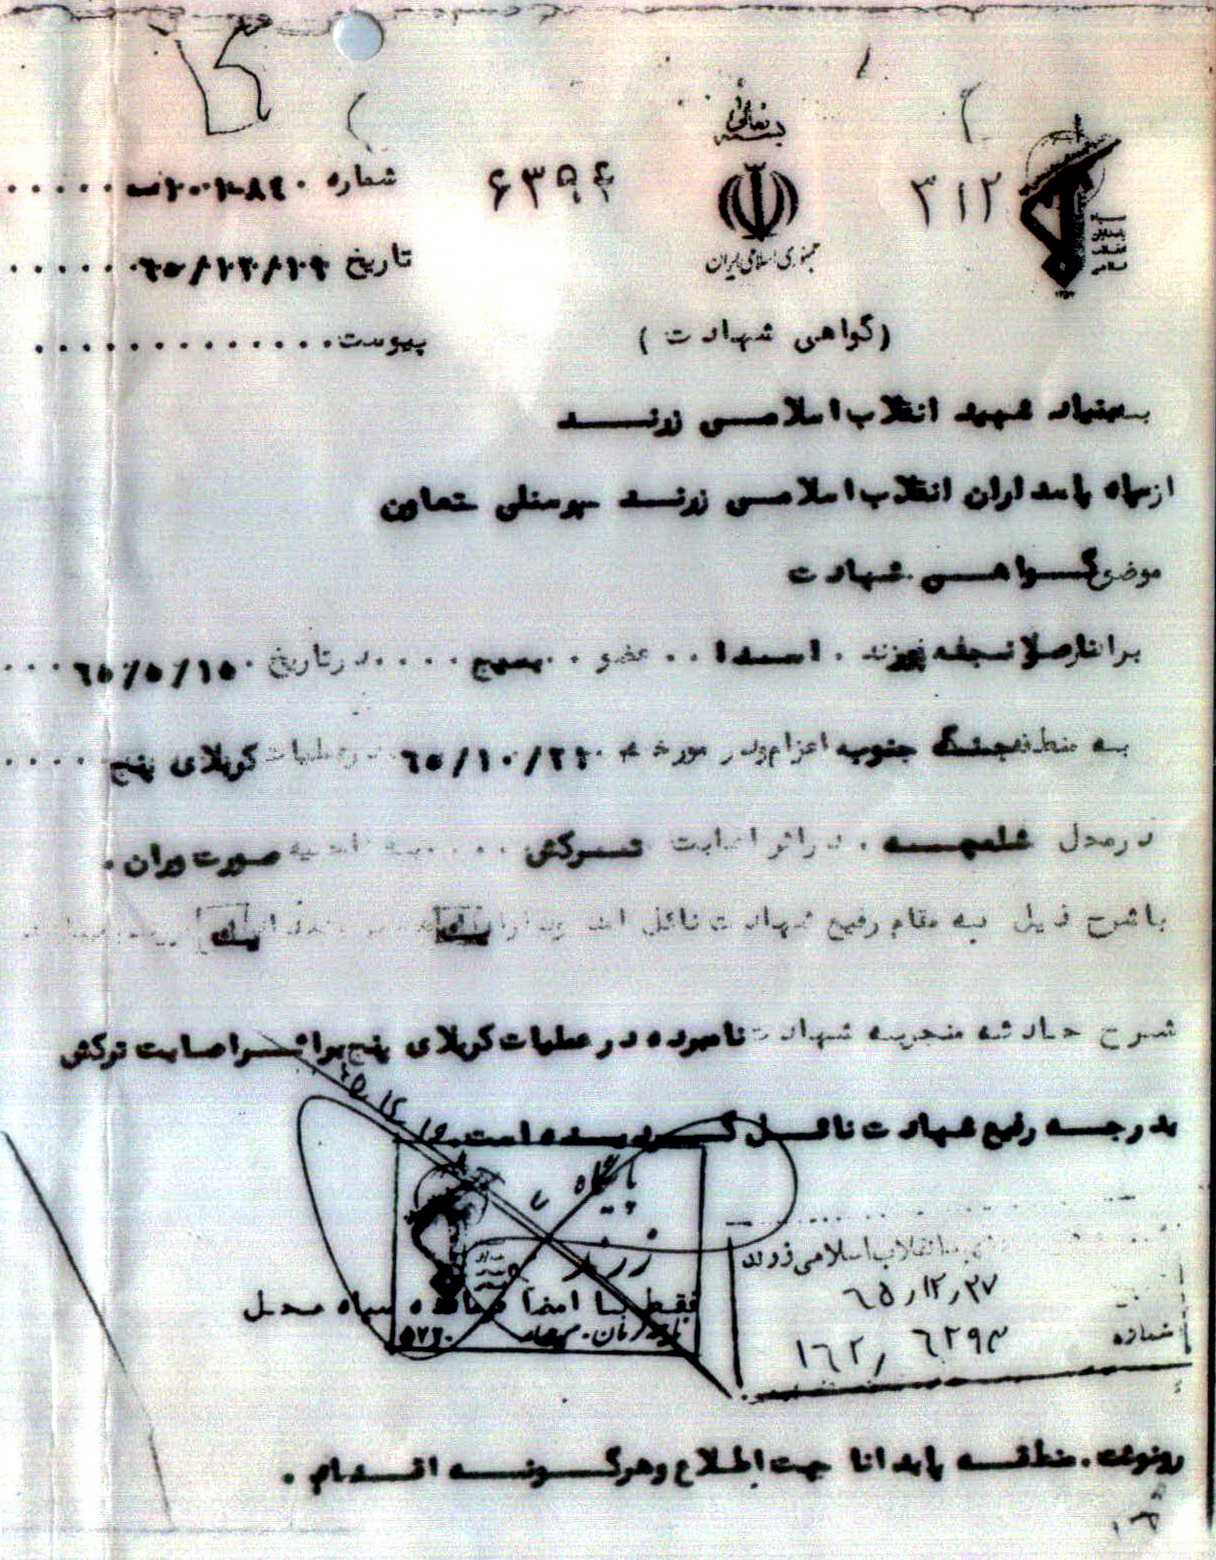 بسمه تعالی
جمهوری اسلامی ایران
۳۱۲
۶۳۵۹۴
شماره
تاریخ
پیوست
(گواهی شهادت)
به بنیاد شهید انقلاب اسلامی زرند
از سپاه پاسداران انقلاب اسلامی زرند پرسنلی تعاون
موضوع گواهی شهادت
برادر فرزند اسدا عضو بسیج در تاریخ ۶۵/۵/۱۵
به منطقه جنگ جنوب اعزام و در مورخه ۶۵/۱۰/ در عملیات کربلای پنج
در محل شلمچه در اثر اصابت ترکش به ناحیه صورت و ران
با شرح ذیل به مقام رفیع شهادت نائل
شرح حادثه منجر به شهادت نامبرده در عملیات کربلای پنج بر اثر اصابت ترکش
به درجه رفیع شهادت نائل گردیده است
پایگاه
زرند
فقط با امضا فرمانده سپاه محل
۵۷۶۰
انقلاب اسلامی زرند
۶۵٫۱۲٫۲۷
شماره
رونوشت. منطقه جهت اطلاع و هرگونه اقدام.